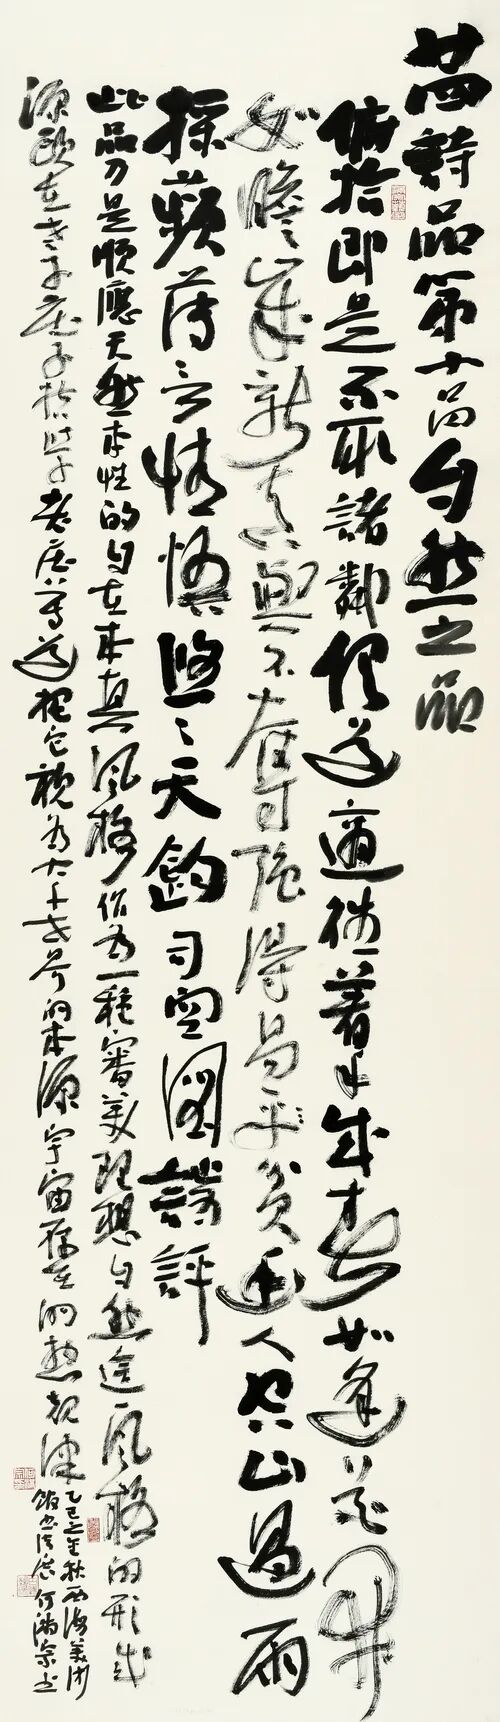 廿四詩品第十品自然之品
俯拾即是不取諸鄰俱道適往著手成春如逢花開
如瞻歲新真與不奪强得易平貧幽人空山過雨
採蘋薄言情悟悠〻天鈞司空圖詩評
此品乃是順應天然本性的自在本真風格作为一種審美理想自然這一風格的形成
源頭在老子莊子哲学老莊尊道把它視为大千世界的本源宇宙存在的總規律
乙巳之年秋西海美術
館何满宗书